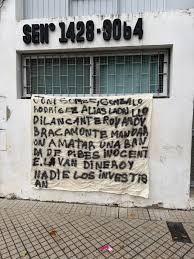 SENº 1428-3054
GONZALO
RODRIGUEZ ALIAS LAON
DILANCANTEROVAROY
BRACAMONTE MANDAR
ON A MATAR UNA BAN
DA DE PIBES INOCENT
E. LAVAN DINERO Y
NADIE LOS INVESTI
AN